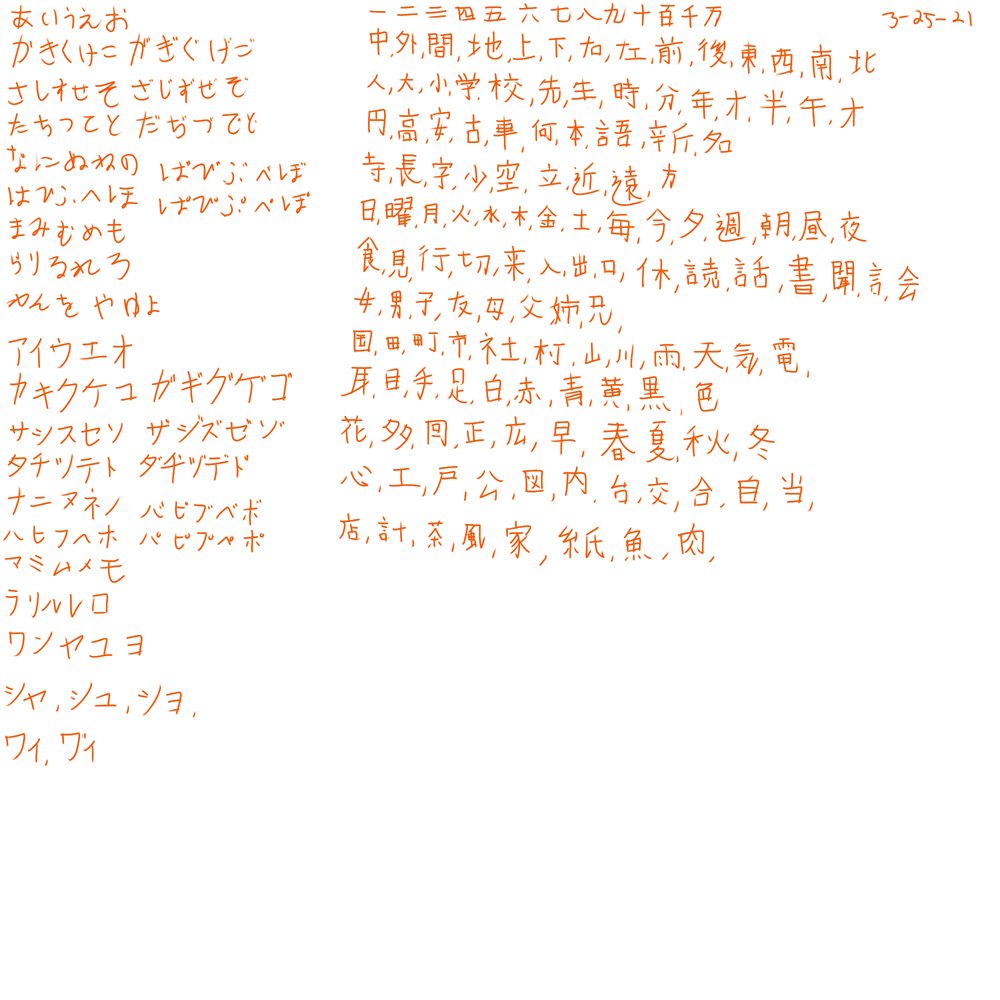 あいうえお
かきくけこ がぎぐげご
さしすせそ ざじずぜぞ
たちつてと だぢづでど
なにぬねの
はひふへほ ばびぶべぼ
ぱぴぷぺぽ
まみむめも
らりるれろ
わんを やゆよ
アイウエオ
カキクケコ ガギグゲゴ
サシスセソ ザジズゼゾ
タチツテト ダヂヅデド
ナニヌネノ
ハヒフヘホ バビブベボ
パピプペポ
マミムメモ
ラリルレロ
ワンヤユヨ
シャ, シュ, ショ,
ワィ, ヴィ
一二三四五六七八九十百千万
3-25-21
中,外,間,地,上,下,右,左,前,後,東,西,南,北
人,大,小,学,校,先,生,時,分,年,才,半,午,才
円,高,安,古,車,何,本,語,新,名
寺,長,字,少,空,立,近,遠,方
日,曜,月,火,水,木,金,土,毎,今,夕,週,朝,昼,夜
食,見,行,切,来,入,出,口,休,読,話,書,聞,言,会
女,男,子,友,母,父,姉,兄,
国,田,町,市,社,村,山,川,雨,天,気,電,
耳,目,手,足,白,赤,青,黄,黒,色
花,多,同,正,広,早,春,夏,秋,冬
心,工,戸,公,図,内,台,交,合,自,当,
店,計,茶,風,家,紙,魚,肉,